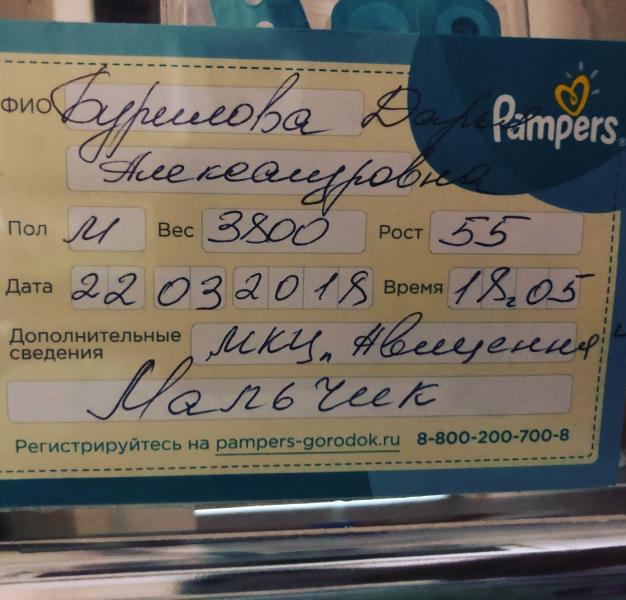 Pampers
ФИО Бурилова Дарья
Александровна
Пол М Вес 3800 Рост 55
Дата 22 03 2018 Время 18.05
Дополнительные сведения МКЦ „Авиценна
Мальчик
Регистрируйтесь на pampers-gorodok.ru 8-800-200-700-8